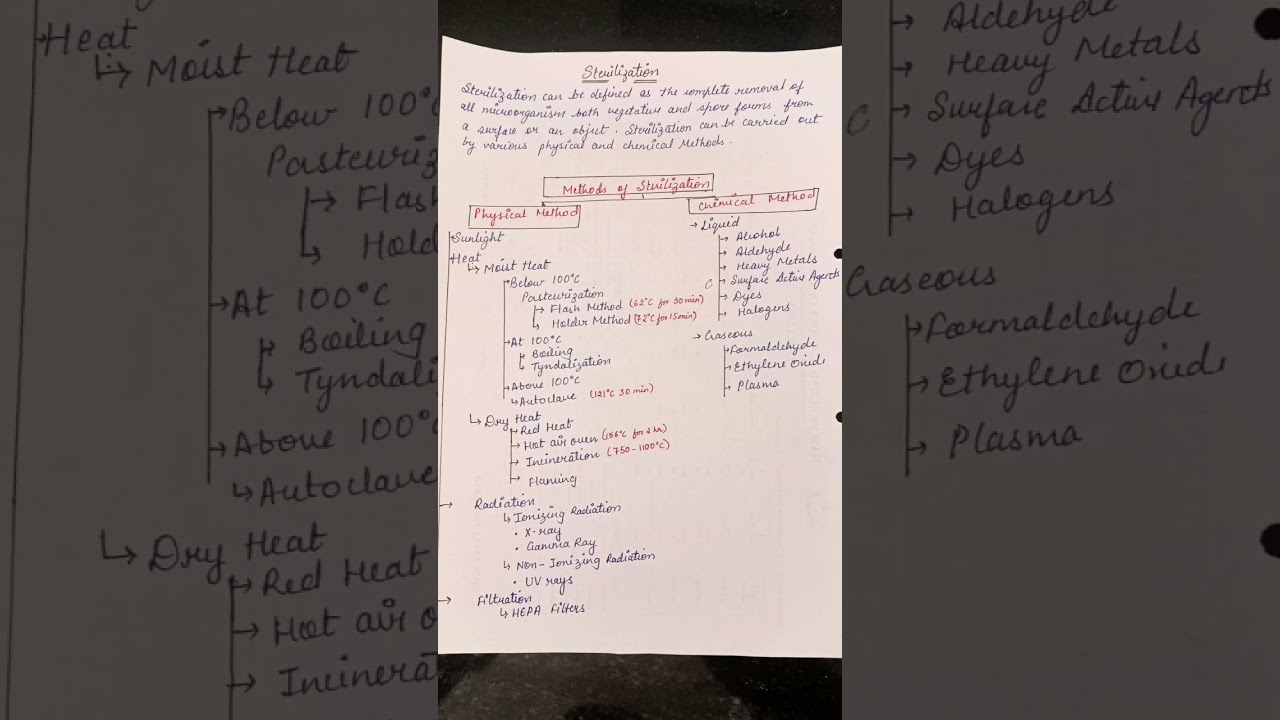 Sterilization
Sterilization can be defined as the complete removal of
all microorganism both vegetative and spore forms from
a surface or an object. Sterilization can be carried out
by various physical and chemical Methods.
Methods of Sterilization
Physical Method
→Sunlight
Heat
↳ Moist Heat
→Below 100°C
Pasteurization
→ Flash Method (62°C for 30min)
↳ Holder Method (72°C for 15min)
→At 100°C
→ Boiling
↳ Tyndalization
→Above 100°C
↳Autoclave (121°C 30 min)
↳ Dry Heat
→Red Heat
→Hot air oven (156°C for 2hr)
→ Incineration (750-1100°C)
→ Flaming
→ Radiation
↳Ionizing Radiation
• X-ray
• Gamma Ray
↳ Non-Ionizing Radiation
• UV rays
→ Filtration
↳HEPA Filters
Chemical Method
→ Liquid
→ Alcohol
→ Aldehyde
→ Heavy Metals
C → Surface Active Agents
→ Dyes
→ Halogens
→ Gaseous
→Formaldehyde
→Ethylene Oxide
→ Plasma
→Heat
↳ Moist Heat
→Below 100°C
Pasteuriz
→ Flash
↳ Hold
→At 100°C
→ Boiling
↳ Tyndali
→Above 100°
↳Autoclave
↳ Dry Heat
→Red Heat
→ Hot air o
→ Incinera
→ Aldehyde
→ Heavy Metals
C → Surface Active Agents
→ Dyes
→ Halogens
Gaseous
→Formaldehyde
→ Ethylene Oxide
→ Plasma